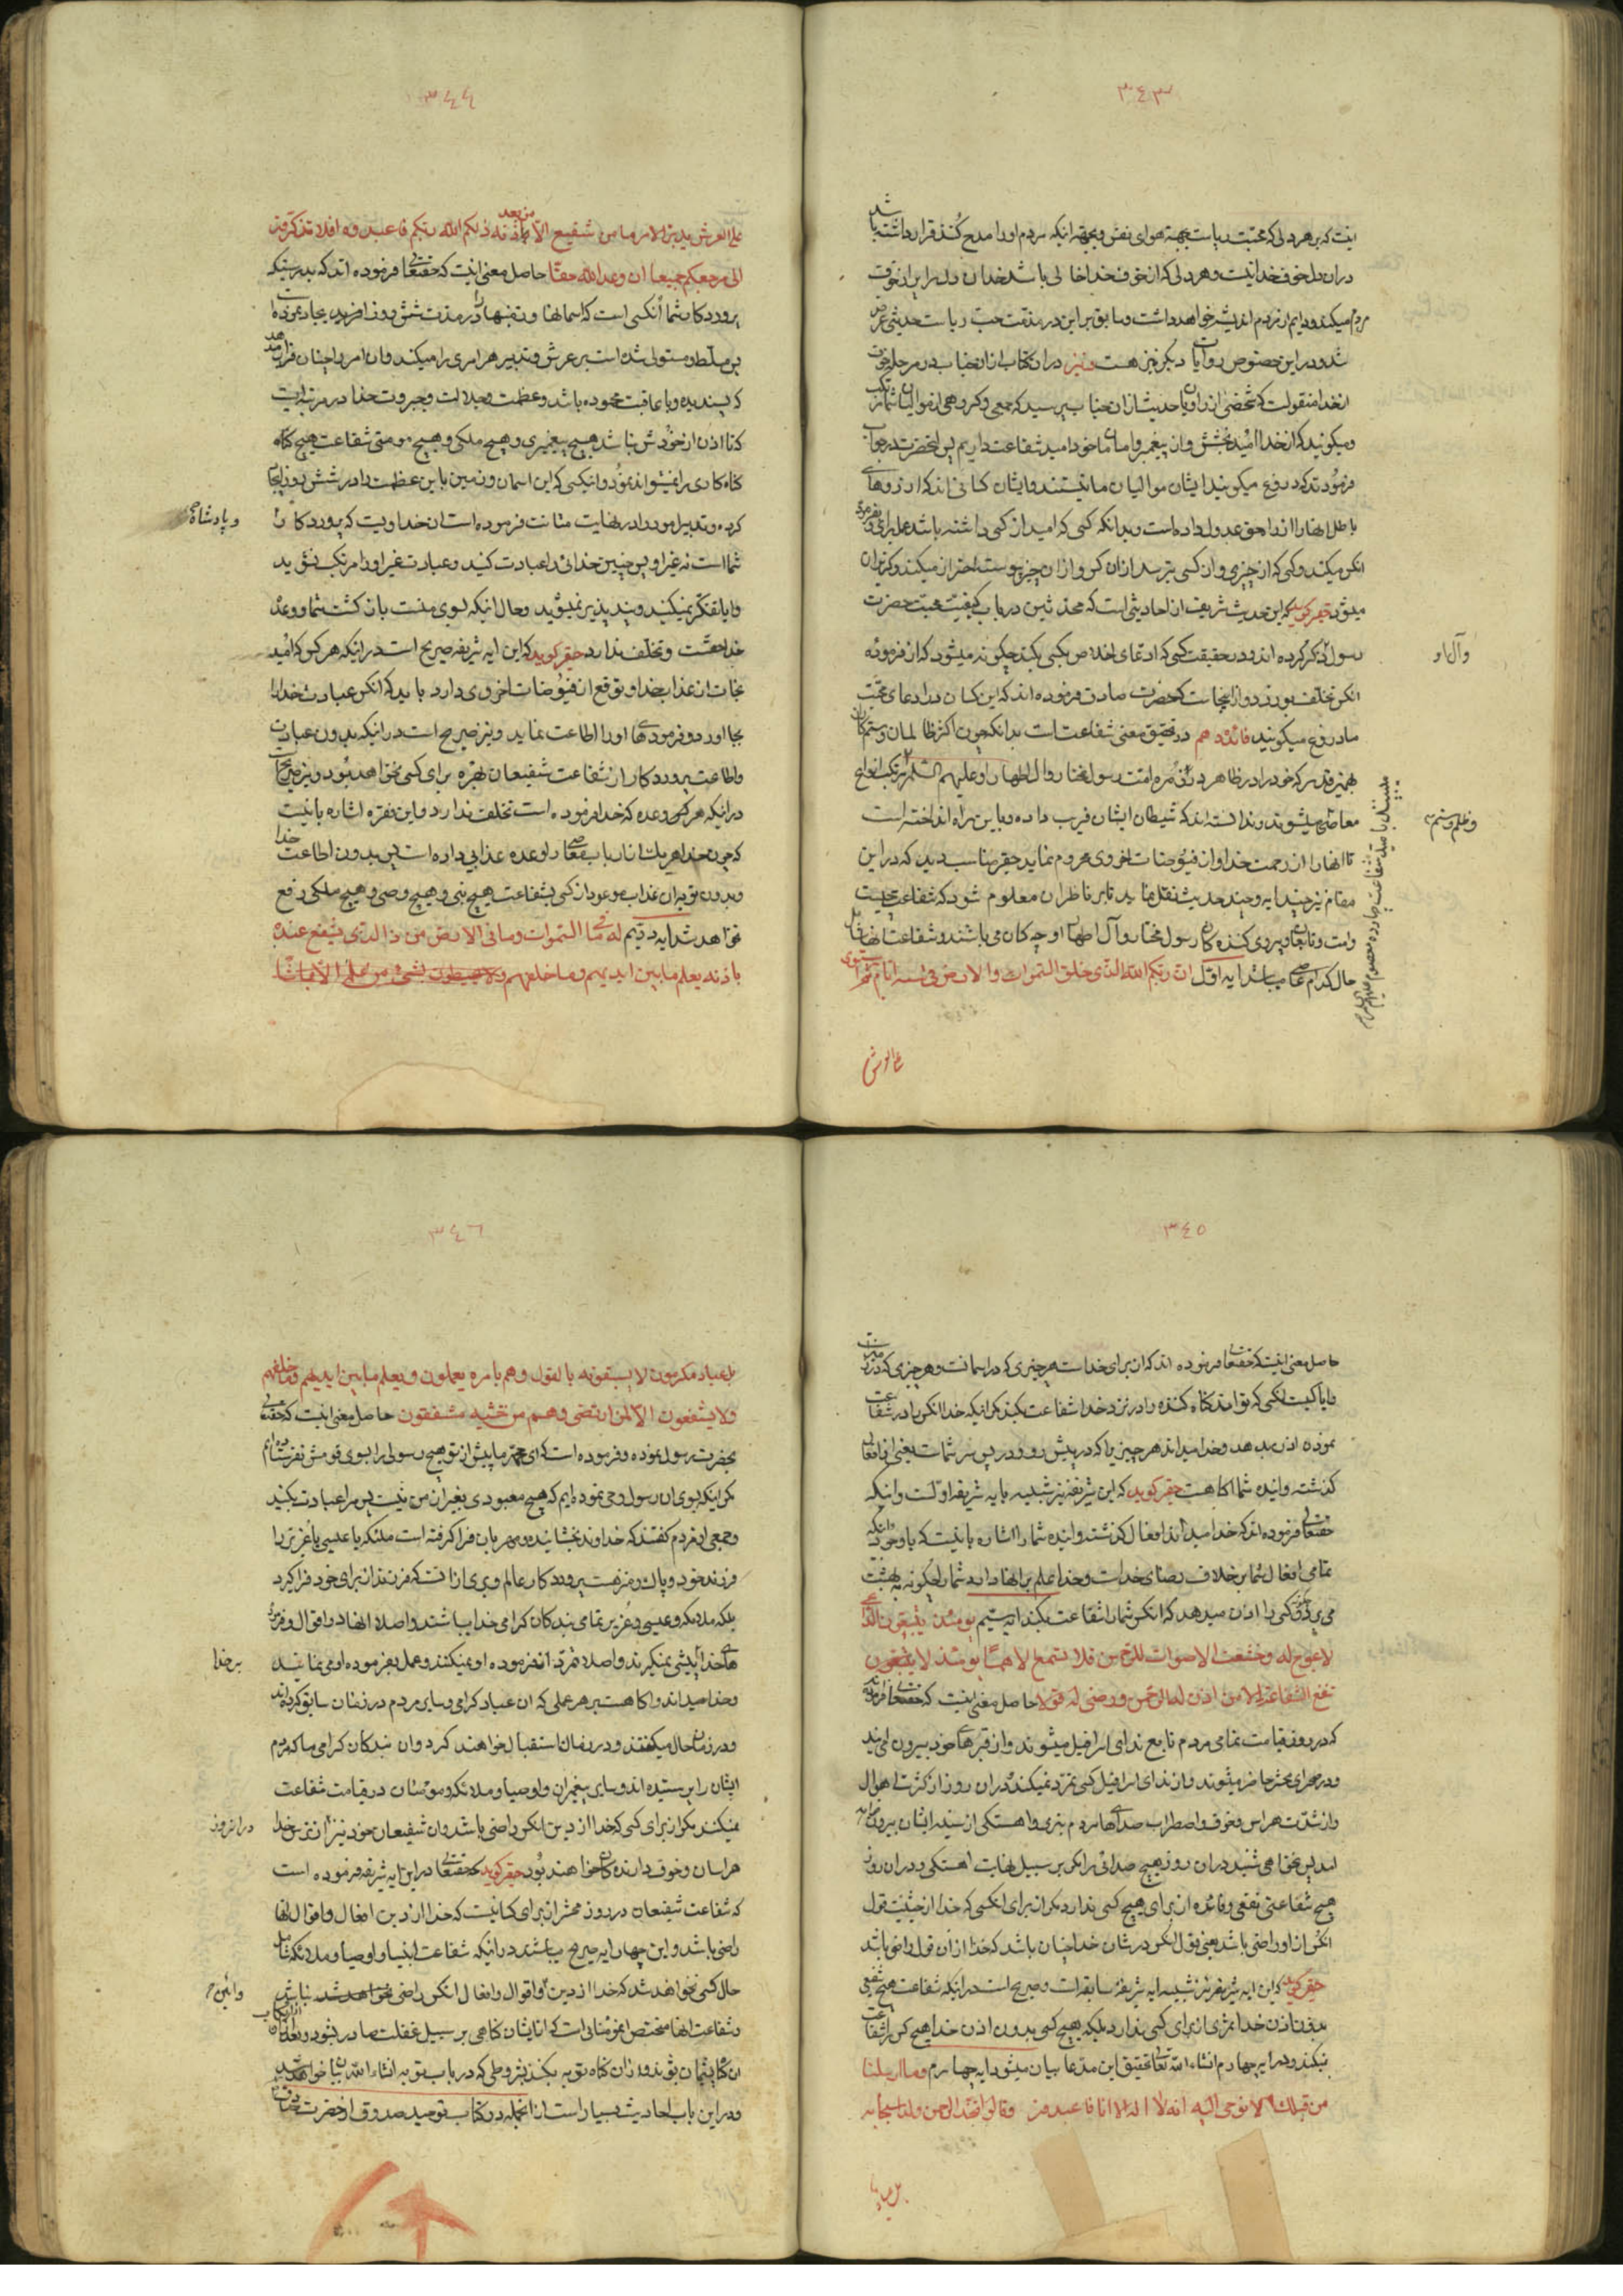 ٣٤٣
اینست که بر هر دلی که محبت ریاست بجهة هوای نفس و بجهة اینکه مردم او را مدح کنند قرار داشته باشد
در ان دل خوف خدا نیست و هر دلی که از خوف خدا خالی باشد خدا ان دل را
مردم میکند و دایم از مردم اندیشه خواهد داشت و سابق بر این در مذمت حب ریاست حدیثی عرض
شد و در این خصوص روایات دیگر نیز هست و نیز در ان کتاب از انجناب در مرحله خوف
از خدا منقولست که شخصی از راویان حدیث از ان جناب پرسید که جمعی و گروهی از موالیان شما
و میگویند که از خدا امید بخشش و از پیغمبر و امامان ما خود امید شفاعت داریم پس انحضرت در جواب
فرمودند که دروغ میگویند ایشان موالیان ما نیستند و ایشان کسانی اند که ارزوهای
باطل انها را از راه حق عدول داده است و بدانکه کسی که امید از کسی داشته باشد عمل برای
انکس میکند و کسی که از چیزی و از کسی بترسد از ان کس و از ان چیز پیوسته احتراز میکند و گریزان
میشود حقیر گوید که این حدیث شریف از احادیثی است که محدثین در باب کیفیت محبت حضرت
رسول ذکر کرده اند و در حقیقت کسی که ادعای اخلاص بکسی بکند چگونه میشود که از فرموده
انکس تخلف بورزد و از اینجاست که حضرت صادق فرموده اند که این کسان در ادعای محبت
ما دروغ میگویند فائده دهم در تحقیق معنی شفاعت است بدانکه چون اکثر ظالمان و ستمکاران
بهمین قدر که خود را در ظاهر در زمره امت رسول مختار و ال اطهار او علیهم السلام مرتکب انواع
معاصی میشوند و ندانسته اند که شیطان ایشان فریب داده و باین راه انداخته است
تا انها را از رحمت خدا و از فیوضات اخروی محروم نماید حقیر مناسب دید که در این
مقام نیز چند ایه و چند حدیث نقل نماید تا بر ناظران معلوم شود که شفاعت چیست
وامت و تابعان و پیروی کننده کان رسول مختار و آل اطهار او چه کسان می باشند و شفاعت انها شامل
حال کدام عاصی میباشد ایه اول ان ربکم الله الذی خلق السموات والارض فی ستة ایام ثم استوی
وآل او
وظلم وستم
علی العرش
٣٤٤
علی العرش یدبر الامر ما من شفیع الا من بعد اذنه ذلکم الله ربکم فاعبدوه افلا تذکرون
الی مرجعکم جمیعا ان وعد الله حقا حاصل معنی اینست که حقتعالی فرموده اند که بدرستیکه
پروردکار شما انکسی است که اسمانها و زمینها را در مدت شش روز افرید و ایجاد نموده
پس مسلط و مستولی شده است بر عرش و تدبیر هر امری را میکند و ان امر را چنان قرار میدهد
که پسندیده و با عاقبت محموده باشد و عظمت و جلالت و جبروت خدا در مرتبه ایست
که تا اذن از خودش نباشد هیچ پیغمبری و هیچ ملکی و هیچ مومنی شفاعت هیچ گناه
گناه کاری را نمیتواند نمود و انکسی که این اسمان و زمین باین عظمت را در شش روز ایجاد
کرده و تدبیر امور را در نهایت متانت فرموده است ان خداویست که پروردکار
شما است نه غیر او پس چنین خدائی را عبادت کنید و عبادت غیر او را مرتکب نشوید
و ایا تفکر نمیکنید و پند پذیر نمیشوید و حال انکه بسوی منست بازگشت شما و وعده
خدا حقست و تخلف ندارد حقیر گوید که این ایه شریفه صریح است در انیکه هر کس که امید
نجات از عذاب خدا و توقع از فیوضات اخروی دارد باید که انکس عبادت خدا را
بجا اورد و فرمودهای او را اطاعت نماید و نیز صریح است در انیکه بدون عبادت
و اطاعت پروردکار از شفاعت شفیعان بهره برای کسی نخواهد بود و نیز صریح است
در انیکه هر وعده که خدا فرموده است تخلف ندارد و این فقره اشاره باینست
که چون خدا هر یک از ارباب معاصی را وعده عذابی داده است پس بدون اطاعت خدا
و بدون توبه ان عذاب موعود از کسی بشفاعت هیچ نبی و هیچ وصی و هیچ ملکی رفع
نخواهد شد ایه دویم له ما فی السموات وما فی الارض من ذا الذی یشفع عنده
الا باذنه یعلم ما بین ایدیهم وما خلفهم ولا یحیطون بشیء من علمه الا بما شاء
و پادشاه
٣٤٥
حاصل معنی اینست که حقتعالی فرموده اند که از برای خداست هر چیزی که در اسمانست و هر چیزی که در زمین است
و ایا کیست انکسی که تواند گناه کننده را در نزد خدا شفاعت بکند مگر انیکه خدا انکس را در شفاعت
نمودن اذن بدهد و خدا میداند هر چیزیرا که در پیش رو و در پس سر شماست یعنی از افعال
گذشته و اینده شما اگاهست حقیر گوید که این ایه شریفه نیز شبیه بایه شریفه اولست و انیکه
حقتعالی فرموده اند که خدا میداند افعال گذشته و اینده شما را اشاره باینست که با وجود انکه
تمامی افعال شما بر خلاف رضای خداست و خدا علم بر انها دارد شما را چگونه به بهشت
می برد و کسی را اذن میدهد که انکس شما را شفاعت بکند ایه سیم یومئذ یتبعون الداعی
لا عوج له وخشعت الاصوات للرحمن فلا تسمع الا همسا یومئذ لا
تنفع الشفاعة الا من اذن له الرحمن ورضی له قولا حاصل معنی اینست که حقتعالی فرموده
که در روز قیامت تمامی مردم تابع ندای اسرافیل میشوند و از قبرهای خود بیرون می ایند
و در صحرای محشر حاضر میشوند و از ندای اسرافیل کسی تمرد نمیکند و در ان روز از کثرت اهوال
و از شدت هراس و خوف و اضطراب صداهای مردم بنرمی و اهستگی از سینه ایشان بیرون خواهد
امد پس نخواهی شنید در ان روز هیچ صدائی را مگر بر سبیل نهایت اهستگی و در ان روز
هیچ شفاعتی نفعی و فائده از برای هیچ کسی ندارد مگر از برای انکسی که خدا از حیثیت قول
انکس از او راضی باشد یعنی قول انکس در شان خدا چنان باشد که خدا از ان قول راضی باشد
حقیر گوید که این ایه شریفه نیز شبیه ایه شریفه سابقه است و صریح است در انیکه شفاعت هیچ شفیعی
بدون اذن خدا ثمری از برای کسی ندارد بلکه هیچ کسی بدون اذن خدا هیچ کس را شفاعت
نمیکند و در ایه چهارم انشاء الله تعالی تحقیق این مدعا بیان میشود ایه چهارم وما ارسلنا
من قبلک الا نوحی الیه انه لا اله الا انا فاعبدون وقالوا اتخذ الرحمن ولدا سبحانه
٣٤٦
بل عباد مکرمون لا یسبقونه بالقول وهم بامره یعملون ویعلم ما بین ایدیهم وما خلفهم
ولا یشفعون الا لمن ارتضی وهم من خشیته مشفقون حاصل معنی اینست که حقتعالی
بحضرت رسول نموده و فرموده است که ای محمد ما پیش از تو هیچ رسولی را بسوی قومش نفرستاده ایم
مگر انیکه بسوی ان رسول وحی نموده ایم که هیچ معبودی بغیر از من نیست پس مرا عبادت بکنید
و جمعی از مردم گفتند که خداوند بخشاینده و مهربان فرا گرفته است ملئکه یا عیسی یا عزیر را
فرزند خود و پاک و منزهست پروردکار عالم و بری از انست که فرزندان برای خود فرا گیرد
بلکه ملائکه و عیسی و عزیر تمامی بندکان گرامی خدا میباشند و اصلا انها در اقوال و فرموده
های خدا پیشی نمیگیرند و اصلا تمرد از فرموده او نمیکنند و عمل بفرموده او می نمایند
و خدا میداند و اگاهست بر هر عملی که ان عباد گرامی و سایر مردم در زمان سابق کرده اند
و در زمان حال میکنند و در زمان استقبال خواهند کرد و ان بندکان گرامی ما که مردم
ایشان را پرستیده اند و سایر پیغمبران و اوصیا و ملائکه و مومنان در قیامت شفاعت
نمیکنند مگر از برای کسی که خدا از دین انکس راضی باشد و ان شفیعان خود نیز از ترس خدا
هراسان و خوف دارنده گان خواهند بود حقیر گوید که حقتعالی در این ایه شریفه فرموده است
که شفاعت شفیعان در روز محشر از برای کسانیست که خدا از دین و افعال و اقوال انها
راضی باشد و این چهار ایه صریح میباشند در انیکه شفاعت انبیا و اوصیا و ملائکه شامل
حال کسی نخواهد شد که خدا از دین و اقوال و افعال انکس راضی نباشد
و شفاعت انها مختص مؤمنانی است که از ایشان گناهی بر سبیل غفلت صادر بشود و بعد از
ان پشیمان بشوند و از ان گناه توبه بکنند بشروطی که در باب توبه انشاء الله بیان خواهد شد
و در این باب احادیث بسیار است از انجمله در کتاب توحید صدوق از حضرت صادق
بر خدا
در انروز